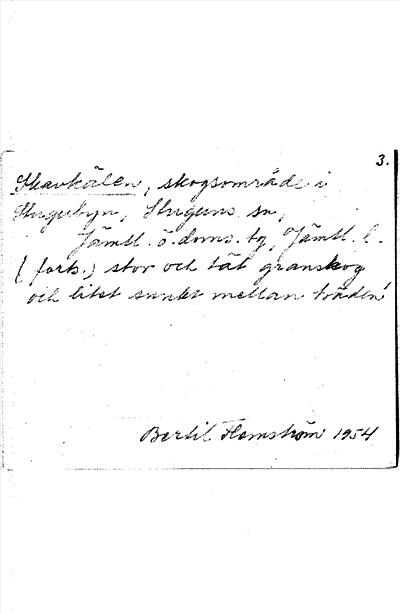 3.
Skavkälen, skogsområde i
Stugubyn, Stuguns sn,
Jämtl. ö. doms. tg, Jämtl. l.
(forts.) stor och tät granskog
och litet sankt mellan träden
Bertil Flemström 1954